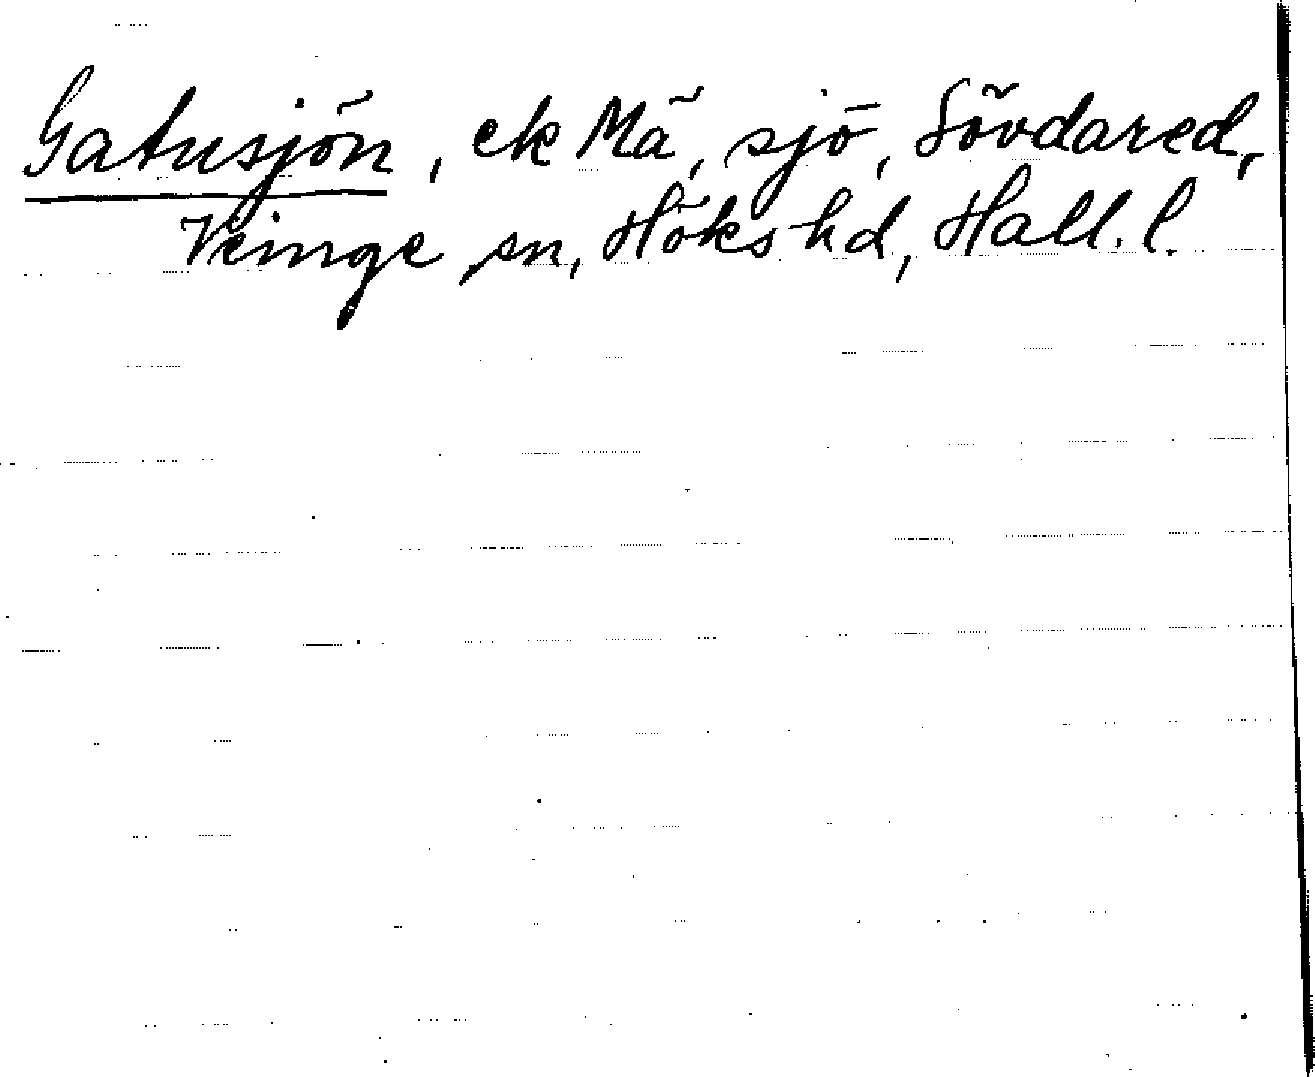 Gatusjön, ek Mä, sjö, Sövdared,
Veinge sn, Höks hd, Hall. l.